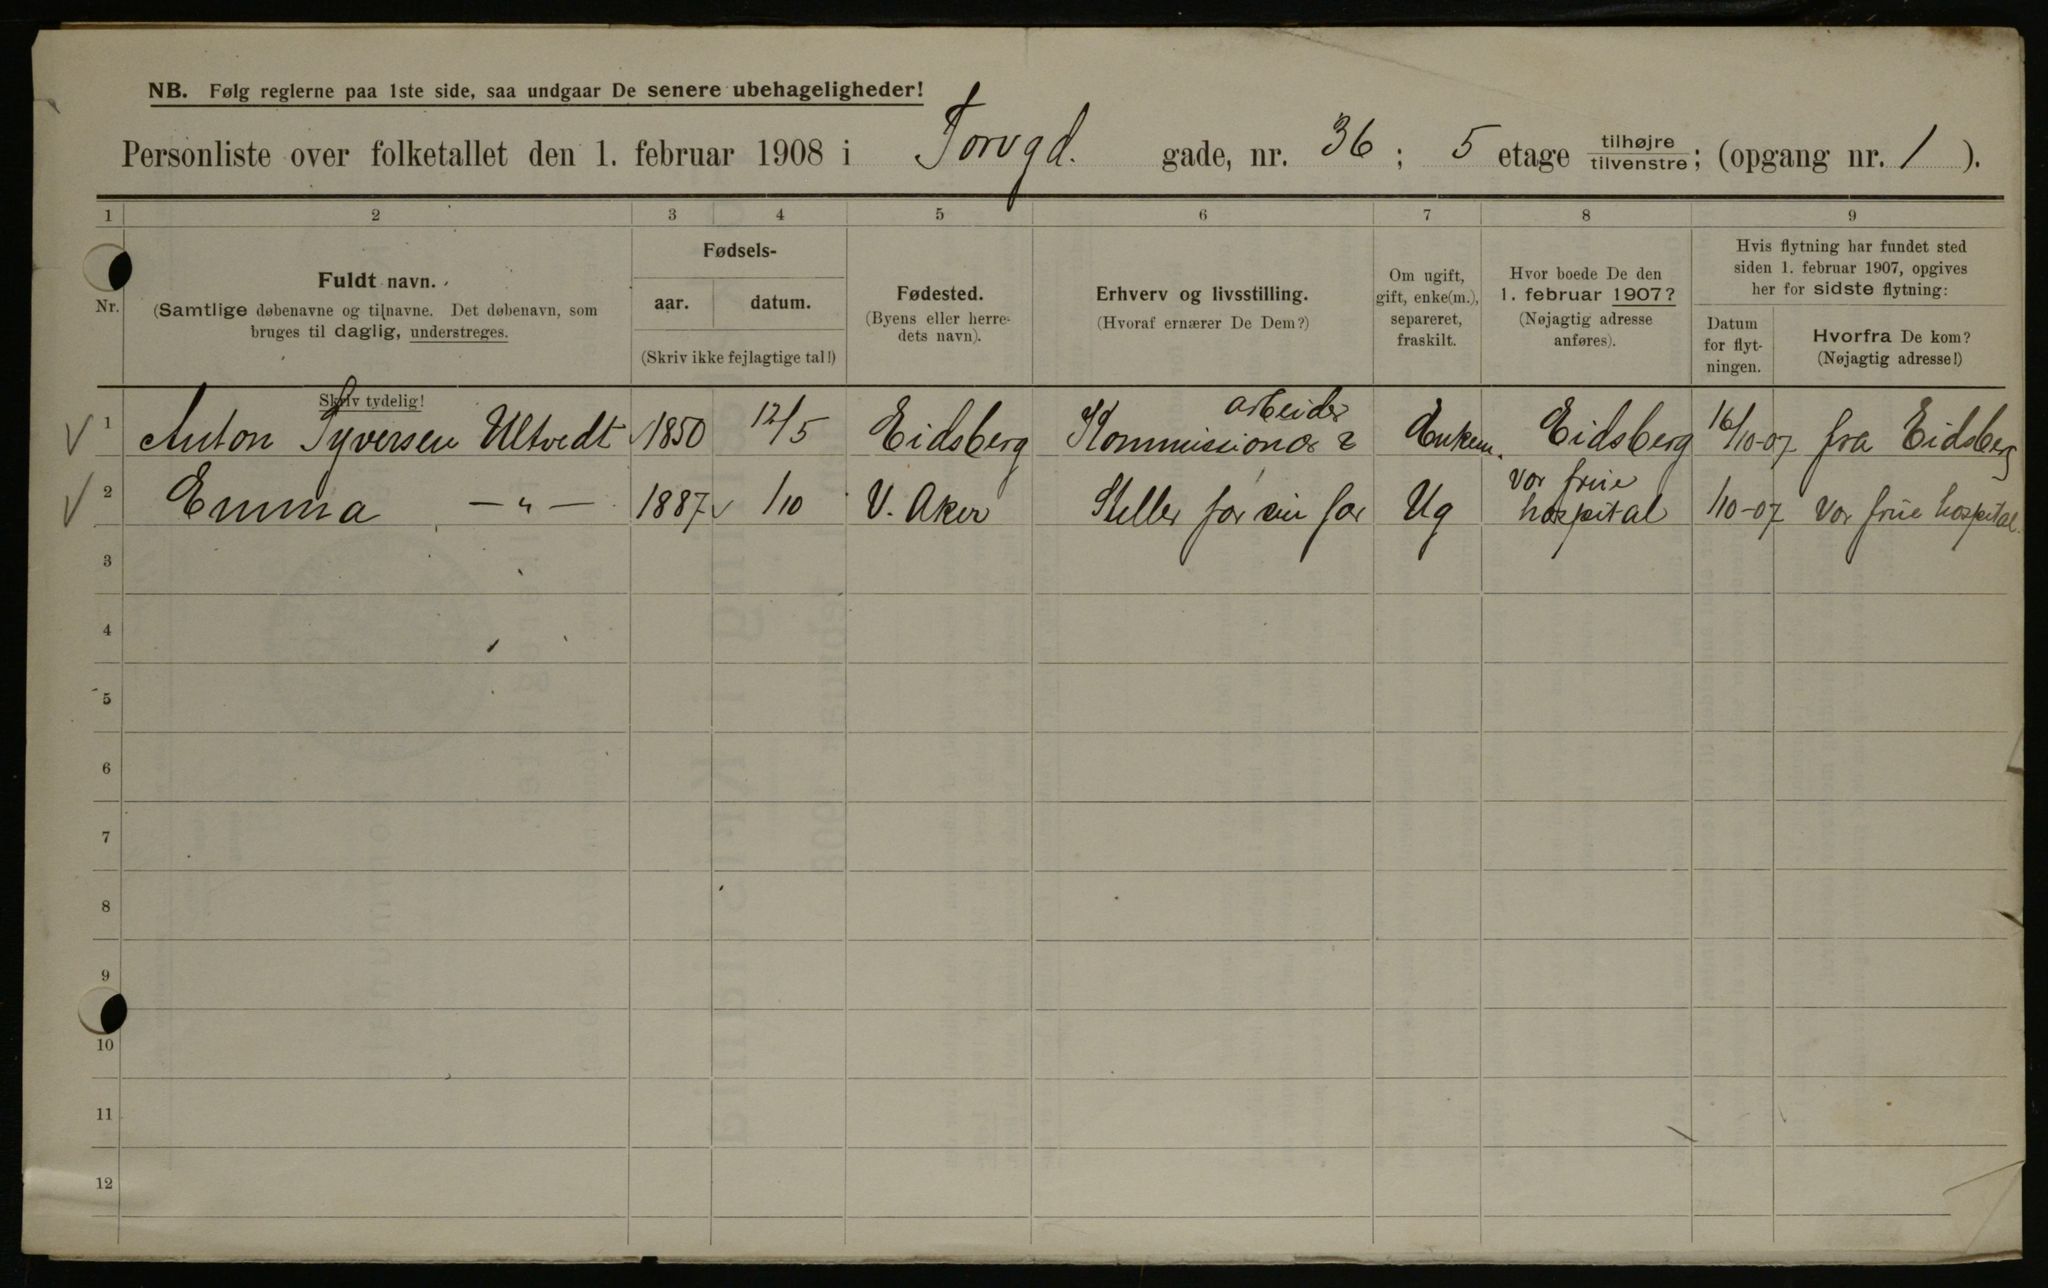 NB. Følg reglerne paa 1ste side, saa undgaar De senere ubehageligheder!
Personliste over folketallet den 1. februar 1908 i Torvgd. gade, nr. 36; 5 etage tilhøjre/tilvenstre; (opgang nr. 1).
1 2 3 4 5 6 7 8 9
Nr.
Fuldt navn.
(Samtlige døbenavne og tilnavne. Det døbenavn, som
bruges til daglig, understreges.
Skriv tydelig!
Fødsels-
aar. datum.
(Skriv ikke fejlagtige tal!)
Fødested.
(Byens eller herre-
dets navn).
Erhverv og livsstilling.
(Hvoraf ernærer De Dem?)
Om ugift,
gift, enke(m.),
separeret,
fraskilt.
Hvor boede De den
1. februar 1907?
(Nøjagtig adresse
anføres).
Hvis flytning har fundet sted
siden 1. februar 1907, opgives
her for sidste flytning:
Datum
for flyt-
ningen.
Hvorfra De kom?
(Nøjagtig adresse!)
arbeider
1 Anton Syversen Ultvedt 1850 12/5 Eidsberg Kommissionær Enkem. Eidsberg 16/10-07 fra Eidsberg
Vor frue
2 Emma —„— 1887 /10 V. Aker Steller for sin far Ug hospital /10-07 Vor frue hospital.
3
4
5
6
7
8
9
10
11
12